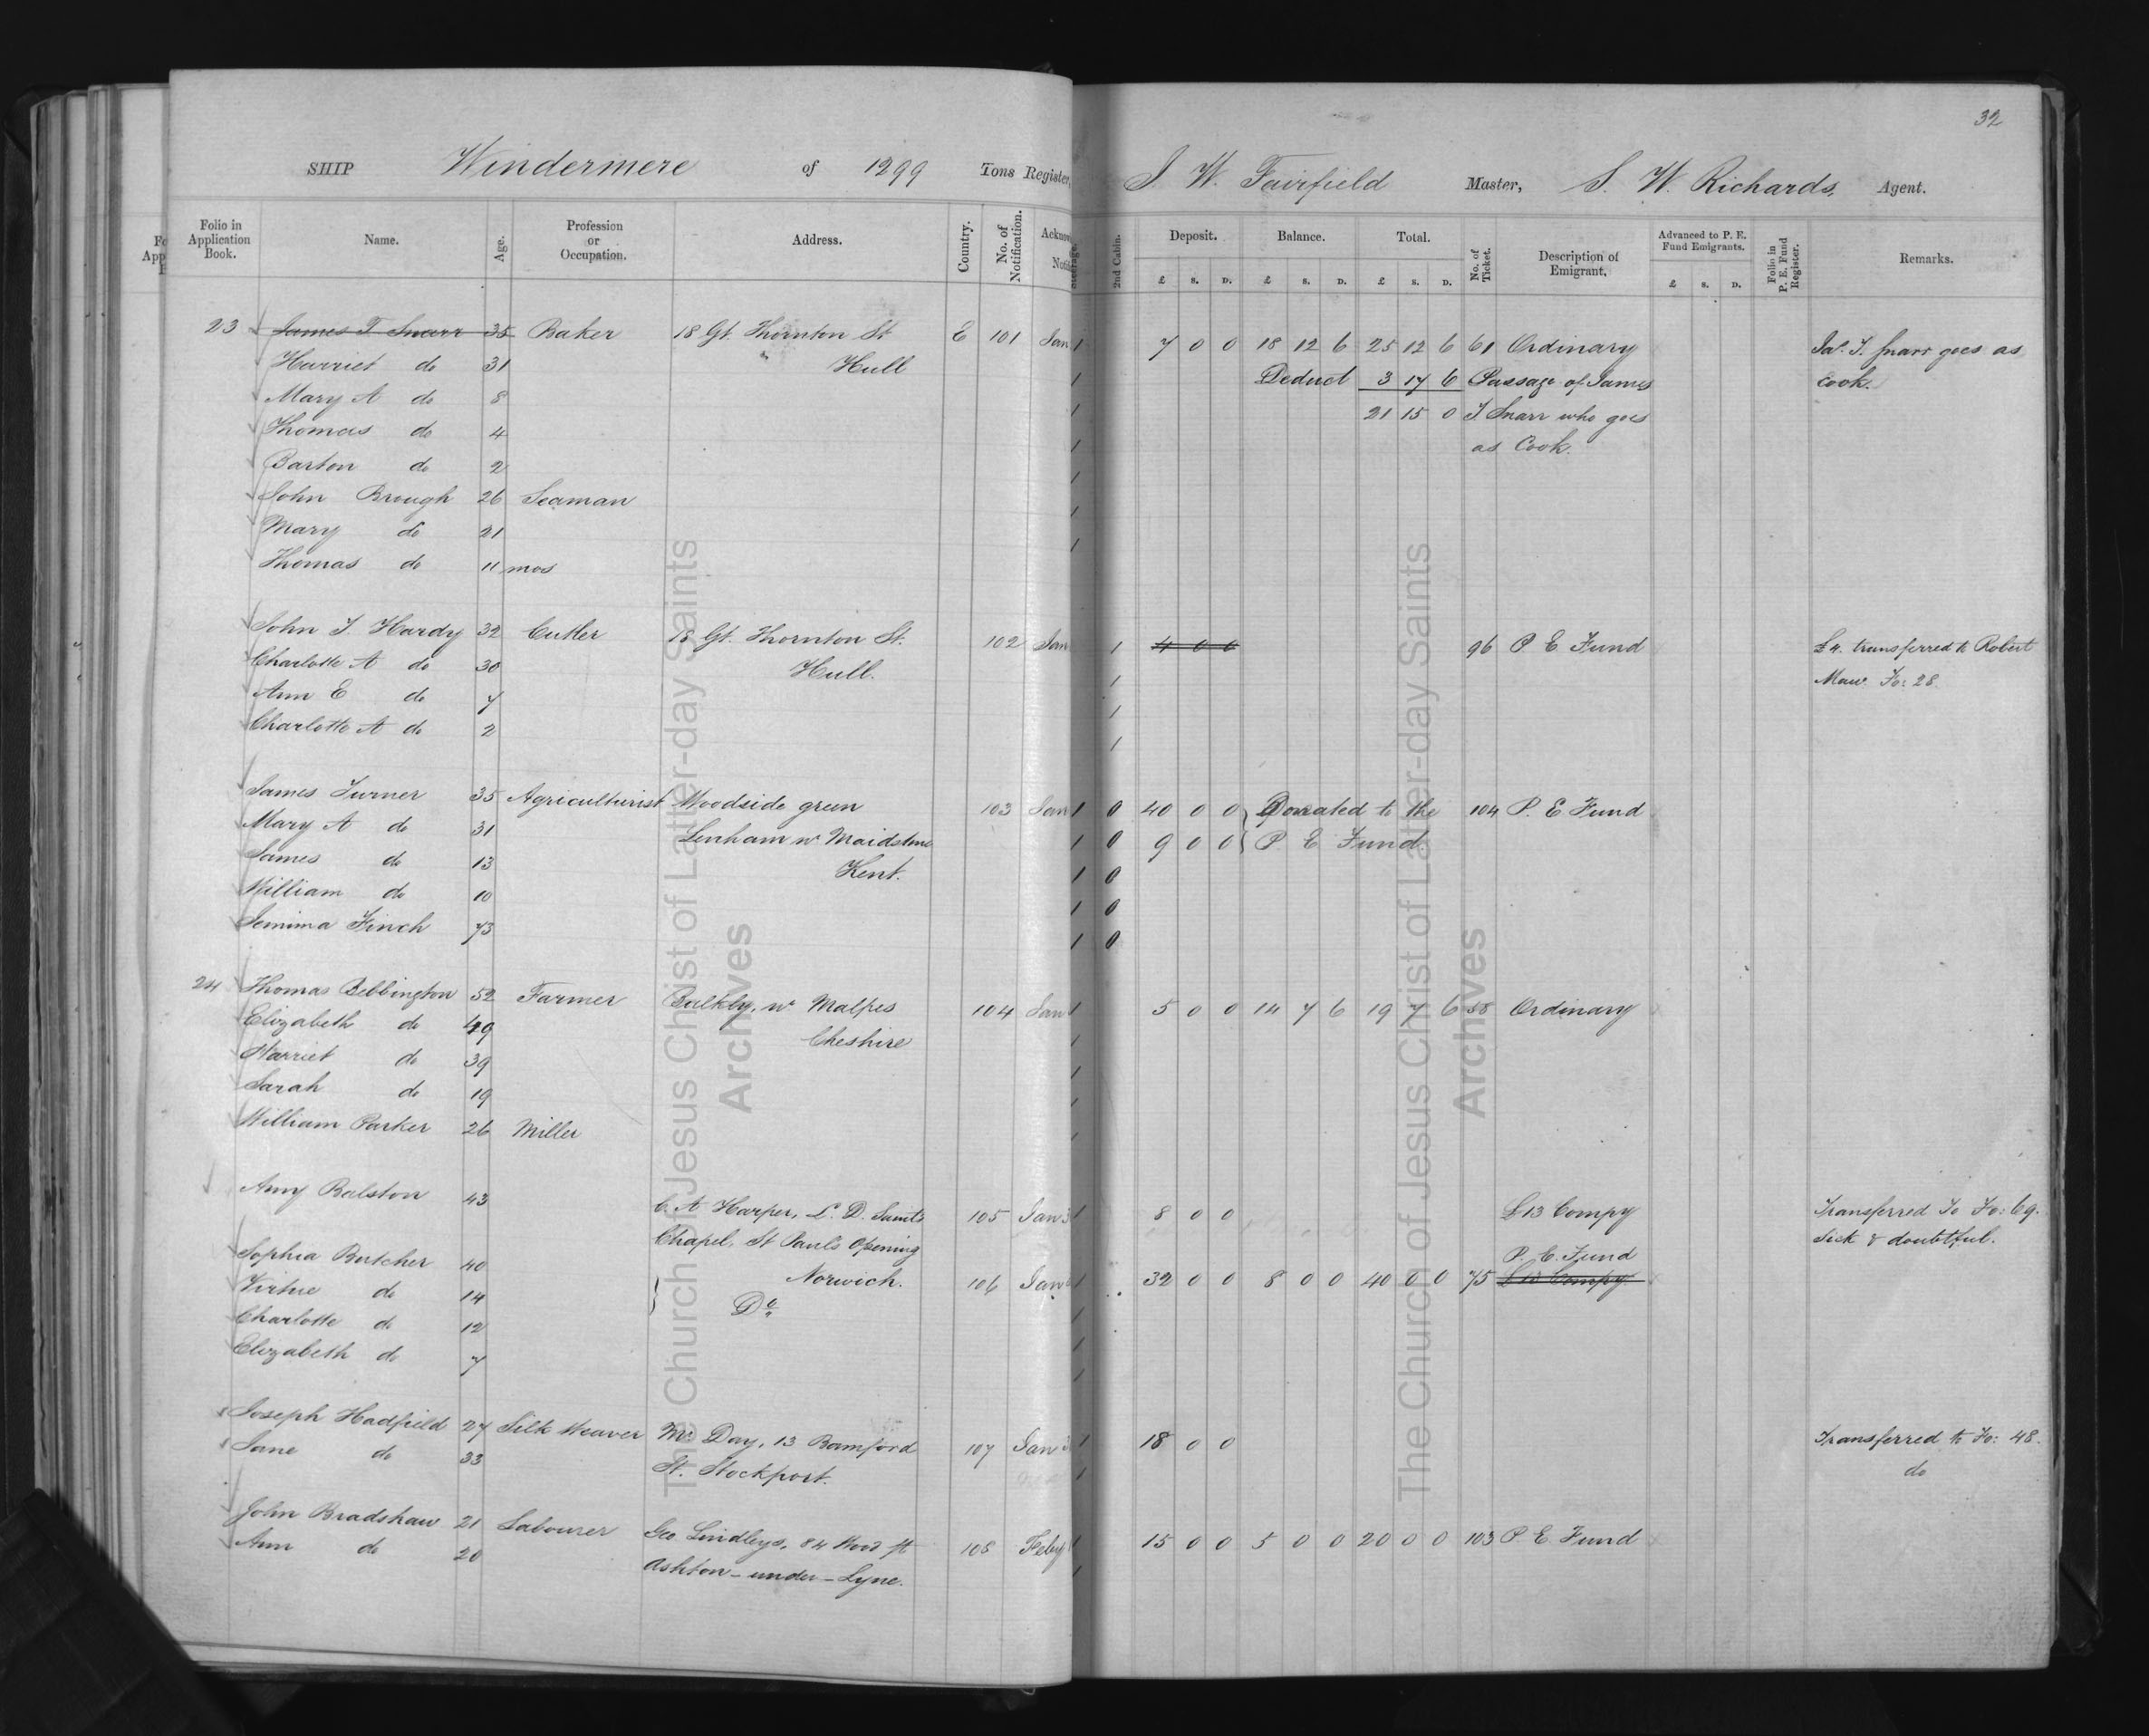 32
SHIP Windermere of 1299 Tons Register, J. W. Fairfield Master, S. W. Richards, Agent.
Folio in Application Book. Name. Age. Profession or Occupation. Address. Country. No. of Notification. 2nd Cabin. Deposit. Balance. Total. No. of Ticket. Description of Emigrant. Advanced to P. E. Fund Emigrants. Folio in P. E. Fund Register. Remarks.
£ S. D. £ S. D. £ S. D. £ S. D.
23 James T Snarr 35 Baker 18 Gt. Thornton St E 101 Jan 1 7 0 0 18 12 6 25 12 6 61 Ordinary Jas. T. Snarr goes as
Harriet do 31 Hull 1 Deduct 3 17 6 Passage of James cook.
Mary A do 8 1 21 15 0 T. Snarr who goes
Thomas do 4 1 as Cook.
Barton do 2 1
John Brough 26 Seaman 1
Mary do 21 1
Thomas do 11 mos
John T. Hardy 32 Cutler 18 Gt. Thornton St. 102 Jan 1 4 0 0 96 P E Fund £4. transferred to Robert
Charlotte A do 30 Hull. 1 Maw. Fo: 28.
Ann E do 7 1
Charlotte A do 2 1
James Turner 35 Agriculturist Woodside green 103 Jan 1 0 40 0 0 Donated to the 104 P. E Fund
Mary A do 31 Lenham nr Maidstone 1 0 9 0 0 P E Fund.
James do 13 Kent. 1 0
William do 10 1 0
Jemima Finch 73 1 0
24 Thomas Bebbington 52 Farmer Bulkly, nr Malpes 104 Jan 1 5 0 0 14 7 6 19 7 6 58 Ordinary
Elizabeth do 49 Cheshire 1
Harriet do 39 1
Sarah do 19 1
William Parker 26 Miller 1
Amy Ralston 43 C. A Harper, L. D. Saints 105 Jan 3 1 8 0 0 £13 Compy Transferred To Fo: 69.
Chapel, St Pauls Opening Sick & doubtful.
Sophia Butcher 40 Norwich. 106 Jan 1 32 0 0 8 0 0 40 0 0 75 P. E. Fund £10 Compy
Virtue do 14 Do
Charlotte do 12 1
Elizabeth do 7 1
Joseph Hadfield 27 Silk Weaver Mr Day, 13 Bamford 107 Jan 3 1 18 0 0 Transferred to Fo: 48.
Jane do 33 St. Stockport. 1 do
John Bradshaw 21 Labourer Geo Lindleys, 84 Wood St 108 Feby 1 15 0 0 5 0 0 20 0 0 103 P E Fund
Ann do 20 Ashton-under-Lyne. 1
The Church of Jesus Christ of Latter-day Saints
Archives
The Church of Jesus Christ of Latter-day Saints
Archives